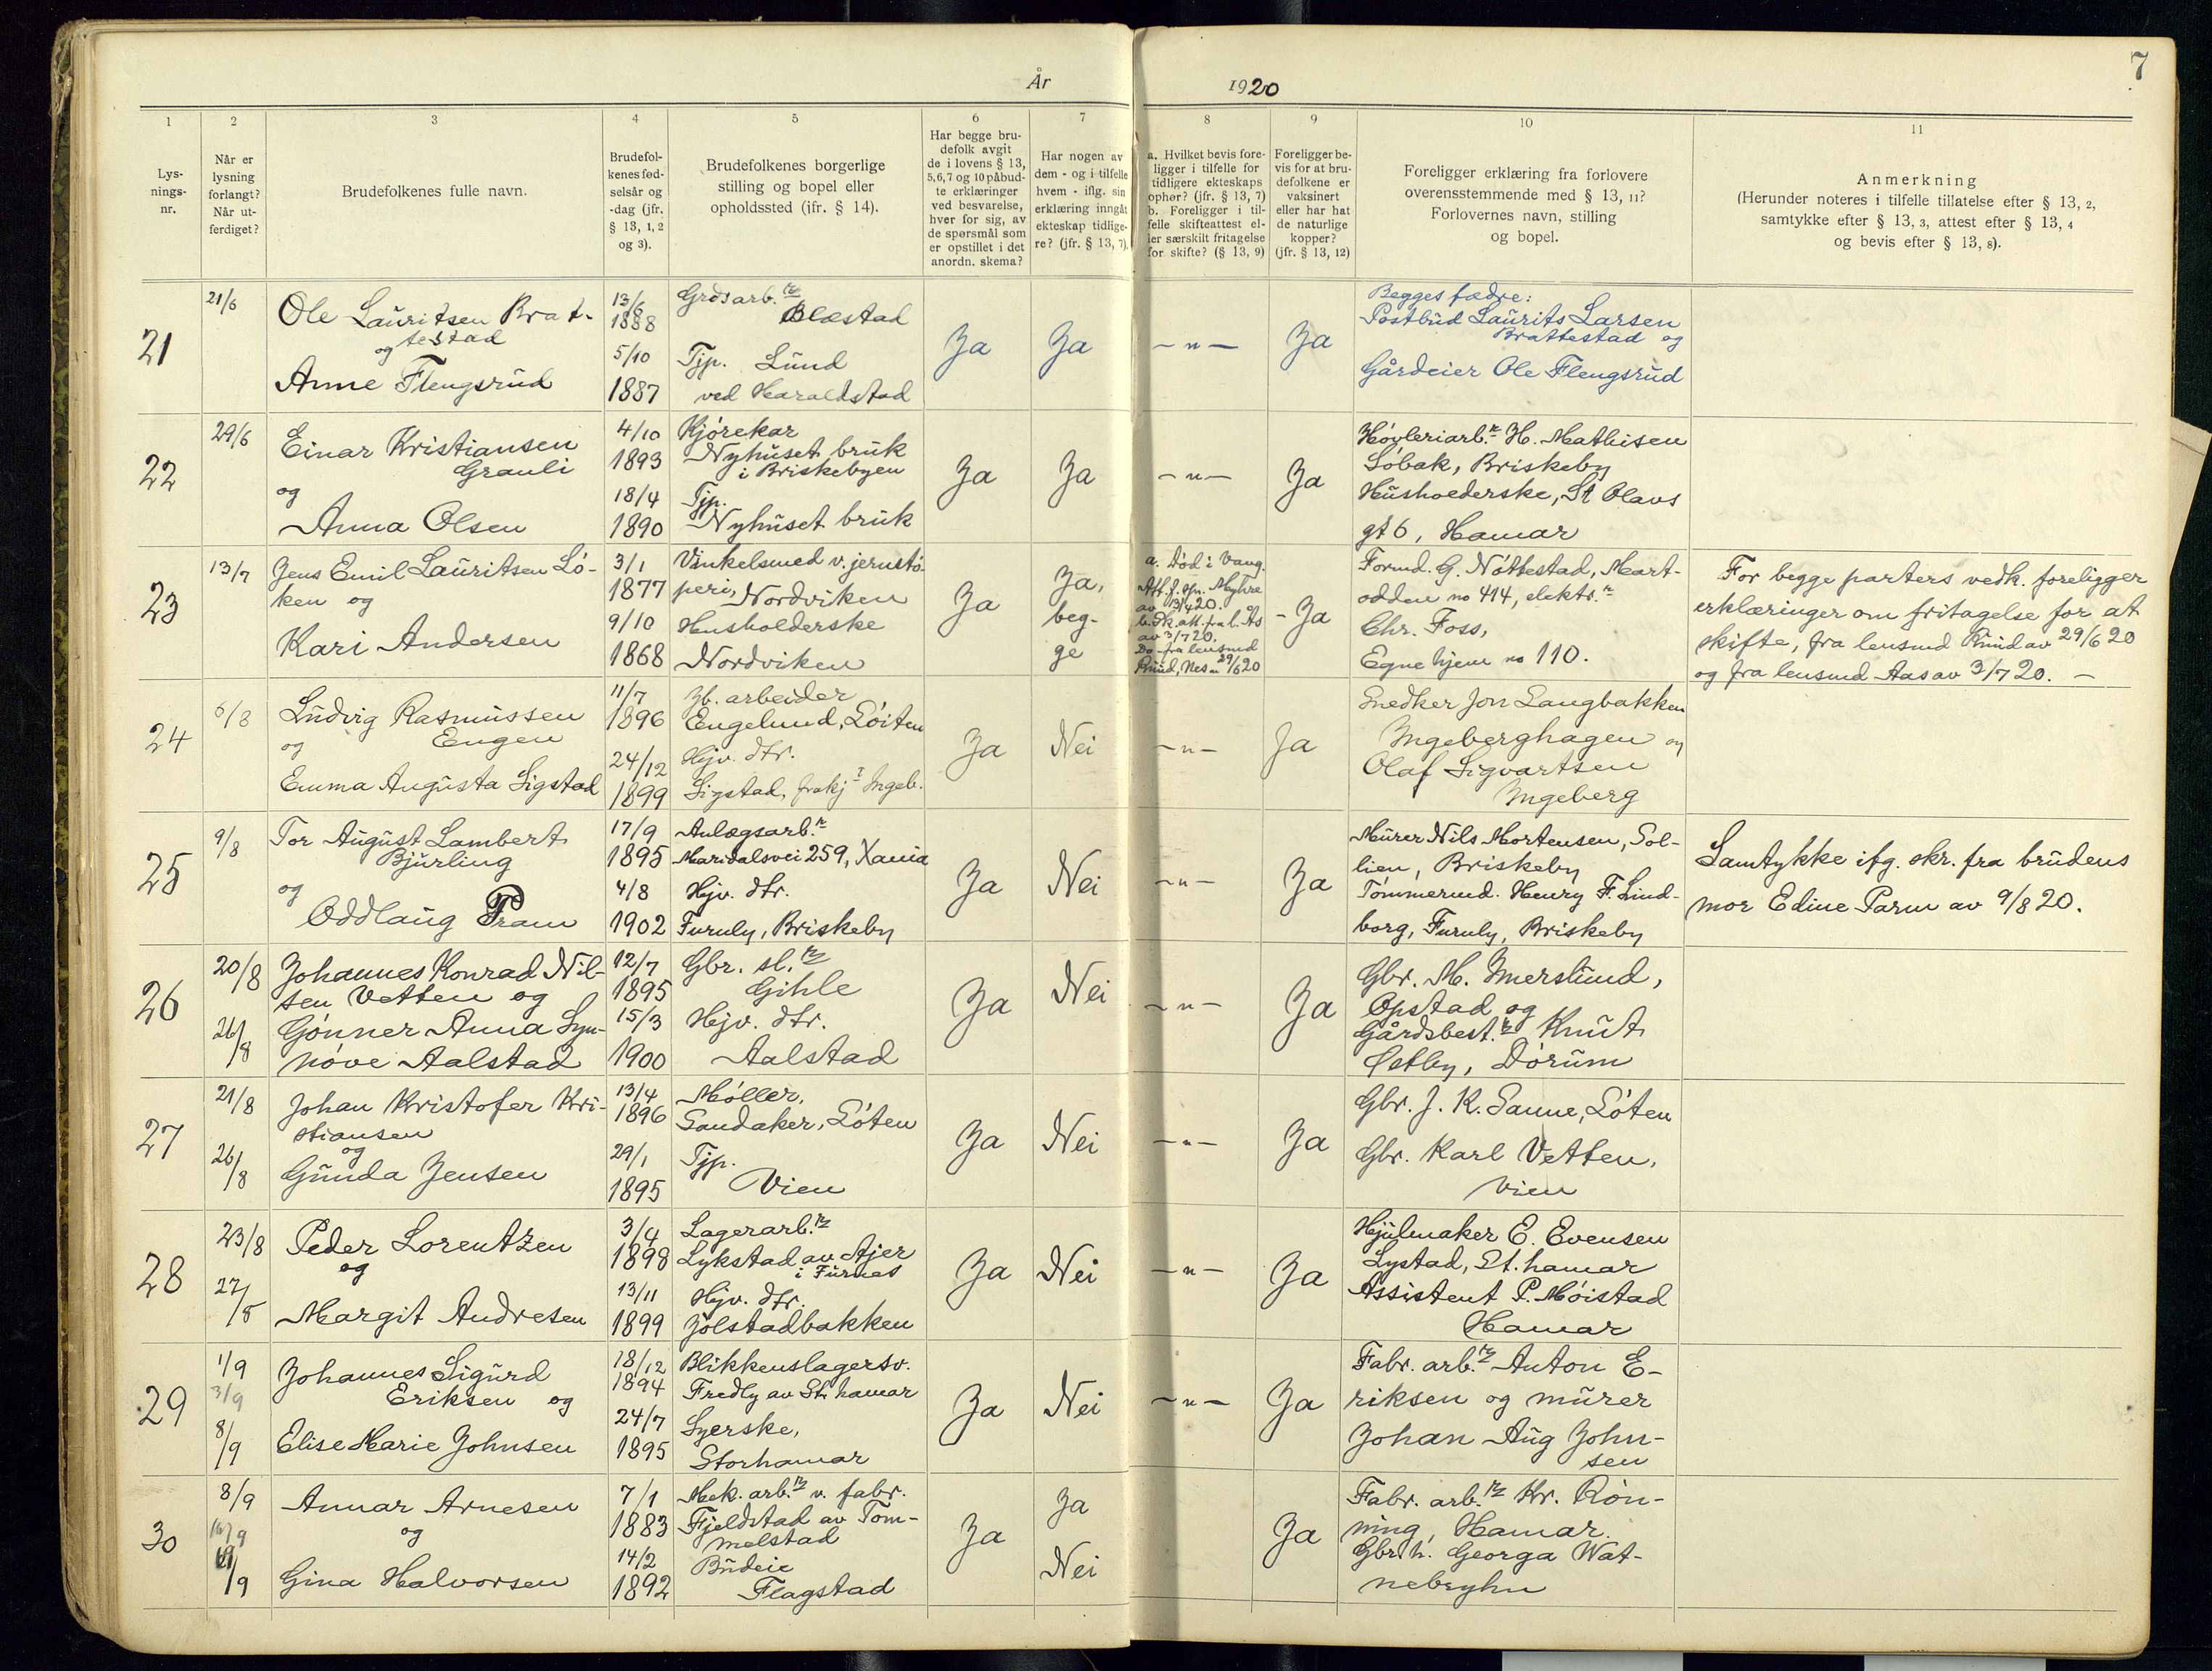 År 1920
7
1 2 3 4 5 6 7 8 9 10 11
Lys-
nings-
nr.
Når er
lysning
forlangt?
Når ut-
ferdiget?
Brudefolkenes fulle navn.
Brudefol-
kenes fød-
selsår og
-dag (jfr.
§ 13, 1, 2
og 3).
Brudefolkenes borgerlige
stilling og bopel eller
opholdssted (jfr. § 14).
Har begge bru-
defolk avgit
de i lovens § 13,
5, 6, 7 og 10 påbud-
te erklæringer
ved besvarelse,
hver for sig, av
de spørsmål som
er opstillet i det
anordn. skema?
Har nogen av
dem - og i tilfelle
hvem - iflg. sin
erklæring inngåt
ekteskap tidlige-
re? (jfr. § 13, 7).
a. Hvilket bevis fore-
ligger i tilfelle for
tidligere ekteskaps
ophør? (jfr. § 13, 7)
b. Foreligger i til-
felle skifteattest el-
ler særskilt fritagelse
for skifte? (§ 13, 9)
Foreligger be-
vis for at bru-
defolkene er
vaksinert
eller har hat
de naturlige
kopper?
(jfr. § 13, 12)
Foreligger erklæring fra forlovere
overensstemmende med § 13, 11?
Forlovernes navn, stilling
og bopel.
Anmerkning
(Herunder noteres i tilfelle tillatelse efter § 13, 2,
samtykke efter § 13, 3, attest efter § 13, 4
og bevis efter § 13, 8).
21
21/6
Ole Lauritsen Brat-
testad
og
Anne Flengsrud
13/6
1888
5/10
1887
Grdsarb.r
Blæstad
Tjp. Lund
ved Haraldstad
Ja
Ja
-"-
Ja
Begges fædre:
Postbud Laurits Larsen
Brattestad og
Gårdeier Ole Flengsrud
22
29/6
Einar Kristiansen
Grauli
og
Anna Olsen
4/10
1893
18/4
1890
Kjørekar
Nyhuset bruk
i Briskebyen
Tjp.
Nyhuset bruk
Ja
Ja
-"-
Ja
Høvleriarb.r H. Mathisen
Løbak, Briskeby
Husholderske, St Olavs
gt 6, Hamar
23
13/7
Jens Emil Lauritsen Lø-
ken og
Kari Andersen
3/1
1877
9/10
1868
Vinkelsmed v. jernstø-
peri, Nordviken
Husholderske
Nordviken
Ja
Ja,
beg-
ge
a. Død i Vang.
Myhre
av 13/4 20.
av 3/7 20.
Do fra lensmd
Ruud, Nes 29/6 20
- Ja
Formd. G. Nøttestad, Mart-
odden no 414, elektr.r
Chr. Foss,
Egne hjem no 110.
For begge parters vedk. foreligger
erklæringer om fritagelse for at
skifte, fra lensmd Ruud av 29/6 20
og fra lensmd Aas av 3/7 20. -
24
6/8
Ludvig Rasmussen
og Engen
Emma Augusta Sigstad
11/7
1896
24/12
1899
Jb. arbeider
Engelund, Løiten
Hjv. dtr.
Sigstad, frakj. Ingeb.
Ja
Nei
-"-
Ja
Snedker Jon Langbakken
Ingeberghagen og
Olaf Sigvartsen
Ingeberg
25
9/8
Tor August Lambert
Bjurling
og
Oddlaug Pram
17/9
1895
4/8
1902
Anlægsarb.r
Maridalsvei 259, Xania
Hjv. dtr.
Furuly, Briskeby
Ja
Nei
-"-
Ja
Murer Nils Mortensen, Sol-
lien, Briskeby
Tømmermd. Henry F. Lind-
borg, Furuly, Briskeby
Samtykke ifg. skr. fra brudens
mor Edine Parm av 9/8 20.
26
20/8
26/8
Johannes Konrad Nil-
sen Vetten og
Gønner Anna Syn-
nøve Aalstad
12/7
1895
15/3
1900
Gbr. sl.r
Gihle
Hjv. dtr.
Aalstad
Ja
Nei
-"-
Ja
Gbr. M. Imerslund,
Opstad og
Gårdsbest.r Knut
Østby, Dørum
27
21/8
26/8
Johan Kristofer Kri-
stiansen
og
Gunda Jensen
13/4
1896
29/1
1895
Møller,
Sandaker, Løten
Tjp.
Vien
Ja
Nei
-"-
Ja
Gbr. J. K. Sanne, Løten
Gbr. Karl Vetten,
Vien
28
23/8
27/8
Peder Lorentzen
og
Margit Andresen
3/4
1898
13/11
1899
Lagerarb.r
Lykstad av Ajer
i Furnes
Hjv. dtr.
Jølstadbakken
Ja
Nei
-"-
Ja
Hjulmaker E. Evensen
Lystad, St. hamar
Assistent P. Møistad
Hamar
29
1/9
3/9
8/9
Johannes Sigurd
Eriksen og
Elise Marie Johnsen
18/12
1894
24/7
1895
Blikkenslagersv.
Fredly av St. hamar
Syerske,
Storhamar
Ja
Nei
-"-
Ja
Fabr. arb.r Anton E-
riksen og murer
Johan Aug John-
sen
30
8/9
Annar Arnesen
og
Gina Halvorsen
7/1
1883
14/2
1892
Mek. arb.r v. fabr.
Fjeldstad av Tom-
melstad
Budeie
Flagstad
Ja
Ja
Nei
Ja
Fabr. arb.r Kr. Røn-
ning, Hamar.
Gbr. h. Georga Wat-
nebryhn